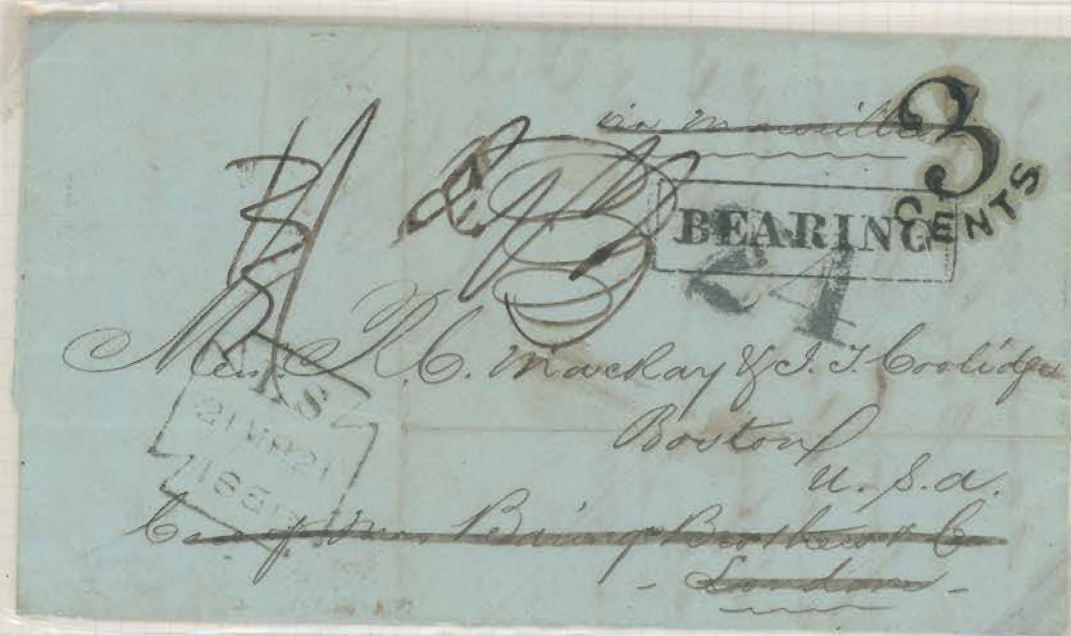 via Marseilles
3
CENTS
BEARING
24
Mess. R. C. Mackay & J. T. Coolidge
Boston
U. S. a.
21 MR 21
185
Care of Baring Brothers & C
- London -